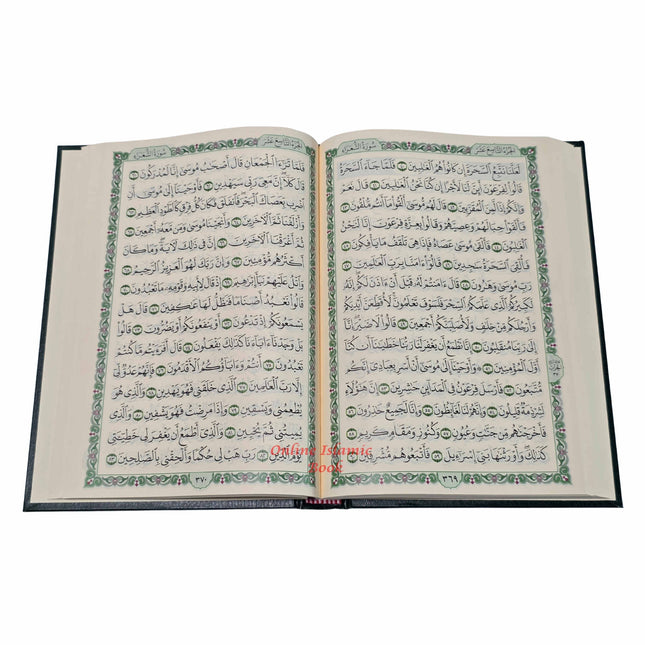 سُورَةُ الشُّعَرَاءِ الجُزْءُ التَّاسِعَ عَشَرَ
لَعَلَّنَا نَتَّبِعُ ٱلسَّحَرَةَ إِن كَانُواْ هُمُ ٱلۡغَٰلِبِينَ ٤٠ فَلَمَّا جَآءَ ٱلسَّحَرَةُ
قَالُواْ لِفِرۡعَوۡنَ أَئِنَّ لَنَا لَأَجۡرًا إِن كُنَّا نَحۡنُ ٱلۡغَٰلِبِينَ ٤١ قَالَ نَعَمۡ
وَإِنَّكُمۡ إِذٗا لَّمِنَ ٱلۡمُقَرَّبِينَ ٤٢ قَالَ لَهُم مُّوسَىٰٓ أَلۡقُواْ مَآ أَنتُم مُّلۡقُونَ ٤٣
فَأَلۡقَوۡاْ حِبَالَهُمۡ وَعِصِيَّهُمۡ وَقَالُواْ بِعِزَّةِ فِرۡعَوۡنَ إِنَّا لَنَحۡنُ
ٱلۡغَٰلِبُونَ ٤٤ فَأَلۡقَىٰ مُوسَىٰ عَصَاهُ فَإِذَا هِيَ تَلۡقَفُ مَا يَأۡفِكُونَ ٤٥
فَأُلۡقِيَ ٱلسَّحَرَةُ سَٰجِدِينَ ٤٦ قَالُوٓاْ ءَامَنَّا بِرَبِّ ٱلۡعَٰلَمِينَ ٤٧
رَبِّ مُوسَىٰ وَهَٰرُونَ ٤٨ قَالَ ءَامَنتُمۡ لَهُۥ قَبۡلَ أَنۡ ءَاذَنَ لَكُمۡۖ إِنَّهُۥ
لَكَبِيرُكُمُ ٱلَّذِي عَلَّمَكُمُ ٱلسِّحۡرَ فَلَسَوۡفَ تَعۡلَمُونَۚ لَأُقَطِّعَنَّ أَيۡدِيَكُمۡ
وَأَرۡجُلَكُم مِّنۡ خِلَٰفٖ وَلَأُصَلِّبَنَّكُمۡ أَجۡمَعِينَ ٤٩ قَالُواْ لَا ضَيۡرَۖ إِنَّآ
إِلَىٰ رَبِّنَا مُنقَلِبُونَ ٥٠ إِنَّا نَطۡمَعُ أَن يَغۡفِرَ لَنَا رَبُّنَا خَطَٰيَٰنَآ أَن كُنَّآ
أَوَّلَ ٱلۡمُؤۡمِنِينَ ٥١ وَأَوۡحَيۡنَآ إِلَىٰ مُوسَىٰٓ أَنۡ أَسۡرِ بِعِبَادِيٓ إِنَّكُم
مُّتَّبَعُونَ ٥٢ فَأَرۡسَلَ فِرۡعَوۡنُ فِي ٱلۡمَدَآئِنِ حَٰشِرِينَ ٥٣ إِنَّ هَٰٓؤُلَآءِ
لَشِرۡذِمَةٞ قَلِيلُونَ ٥٤ وَإِنَّهُمۡ لَنَا لَغَآئِظُونَ ٥٥ وَإِنَّا لَجَمِيعٌ حَٰذِرُونَ ٥٦
فَأَخۡرَجۡنَٰهُم مِّن جَنَّٰتٖ وَعُيُونٖ ٥٧ وَكُنُوزٖ وَمَقَامٖ كَرِيمٖ ٥٨
كَذَٰلِكَۖ وَأَوۡرَثۡنَٰهَا بَنِيٓ إِسۡرَٰٓءِيلَ ٥٩ فَأَتۡبَعُوهُم مُّشۡرِقِينَ ٦٠
٣٦٩
الجُزْءُ التَّاسِعَ عَشَرَ سُورَةُ الشُّعَرَاءِ
فَلَمَّا تَرَٰٓءَا ٱلۡجَمۡعَانِ قَالَ أَصۡحَٰبُ مُوسَىٰٓ إِنَّا لَمُدۡرَكُونَ ٦١
قَالَ كَلَّآۖ إِنَّ مَعِيَ رَبِّي سَيَهۡدِينِ ٦٢ فَأَوۡحَيۡنَآ إِلَىٰ مُوسَىٰٓ أَنِ
ٱضۡرِب بِّعَصَاكَ ٱلۡبَحۡرَۖ فَٱنفَلَقَ فَكَانَ كُلُّ فِرۡقٖ كَٱلطَّوۡدِ ٱلۡعَظِيمِ ٦٣
وَأَزۡلَفۡنَا ثَمَّ ٱلۡأٓخَرِينَ ٦٤ وَأَنجَيۡنَا مُوسَىٰ وَمَن مَّعَهُۥٓ أَجۡمَعِينَ ٦٥
ثُمَّ أَغۡرَقۡنَا ٱلۡأٓخَرِينَ ٦٦ إِنَّ فِي ذَٰلِكَ لَأٓيَةٗۖ وَمَا كَانَ
أَكۡثَرُهُم مُّؤۡمِنِينَ ٦٧ وَإِنَّ رَبَّكَ لَهُوَ ٱلۡعَزِيزُ ٱلرَّحِيمُ ٦٨
وَٱتۡلُ عَلَيۡهِمۡ نَبَأَ إِبۡرَٰهِيمَ ٦٩ إِذۡ قَالَ لِأَبِيهِ وَقَوۡمِهِۦ مَا تَعۡبُدُونَ ٧٠
قَالُواْ نَعۡبُدُ أَصۡنَامٗا فَنَظَلُّ لَهَا عَٰكِفِينَ ٧١ قَالَ هَلۡ
يَسۡمَعُونَكُمۡ إِذۡ تَدۡعُونَ ٧٢ أَوۡ يَنفَعُونَكُمۡ أَوۡ يَضُرُّونَ ٧٣ قَالُواْ
بَلۡ وَجَدۡنَآ ءَابَآءَنَا كَذَٰلِكَ يَفۡعَلُونَ ٧٤ قَالَ أَفَرَءَيۡتُم مَّا كُنتُمۡ
تَعۡبُدُونَ ٧٥ أَنتُمۡ وَءَابَآؤُكُمُ ٱلۡأَقۡدَمُونَ ٧٦ فَإِنَّهُمۡ عَدُوّٞ لِّيٓ
إِلَّا رَبَّ ٱلۡعَٰلَمِينَ ٧٧ ٱلَّذِي خَلَقَنِي فَهُوَ يَهۡدِينِ ٧٨ وَٱلَّذِي هُوَ
يُطۡعِمُنِي وَيَسۡقِينِ ٧٩ وَإِذَا مَرِضۡتُ فَهُوَ يَشۡفِينِ ٨٠ وَٱلَّذِي
يُمِيتُنِي ثُمَّ يُحۡيِينِ ٨١ وَٱلَّذِيٓ أَطۡمَعُ أَن يَغۡفِرَ لِي خَطِيٓـَٔتِي
يَوۡمَ ٱلدِّينِ ٨٢ رَبِّ هَبۡ لِي حُكۡمٗا وَأَلۡحِقۡنِي بِٱلصَّٰلِحِينَ ٨٣
٣٧٠
Online Islamic
Book